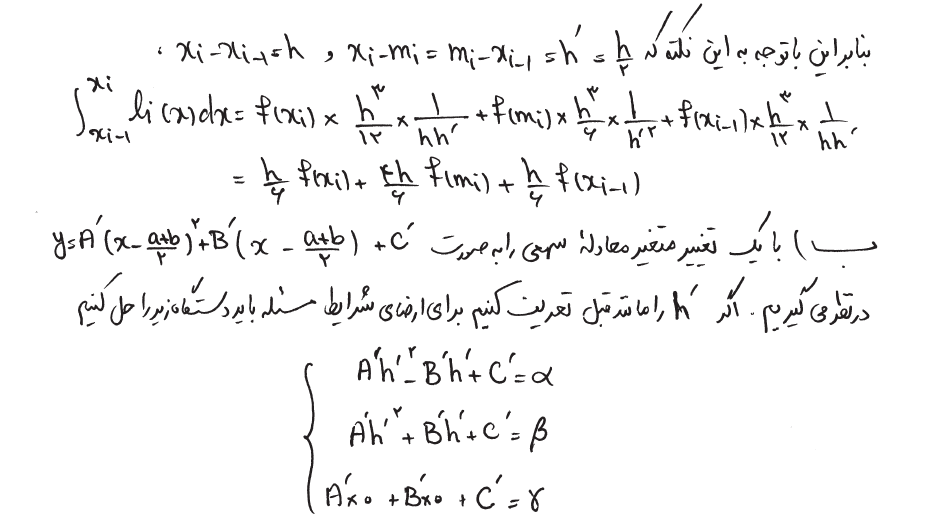 بنابراین با توجه به این نکته که x_i - x_{i-1} = h و x_i - m_i = m_i - x_{i-1} = h' = h/۲ ،
∫_{x_{i-1}}^{x_i} l_i(x)dx = f(x_i) × h^۳/۱۲ × 1/hh' + f(m_i) × h^۳/۶ × 1/h'^۲ + f(x_{i-1}) × h^۳/۱۲ × 1/hh'
= h/۶ f(x_i) + ۴h/۶ f(m_i) + h/۶ f(x_{i-1})
ب) با یک تغییر متغیر معادلهٔ سهمی را به صورت y = A'(x - a+b/۲)^۲ + B'(x - a+b/۲) + C'
در نظر می گیریم. اگر h' را مانند قبل تعریف کنیم برای ارضای شرایط مسئله باید دستگاه زیر را حل کنیم
A'h'^۲ - B'h' + C' = α
A'h'^۲ + B'h' + C' = β
A'×۰ + B'×۰ + C' = γ